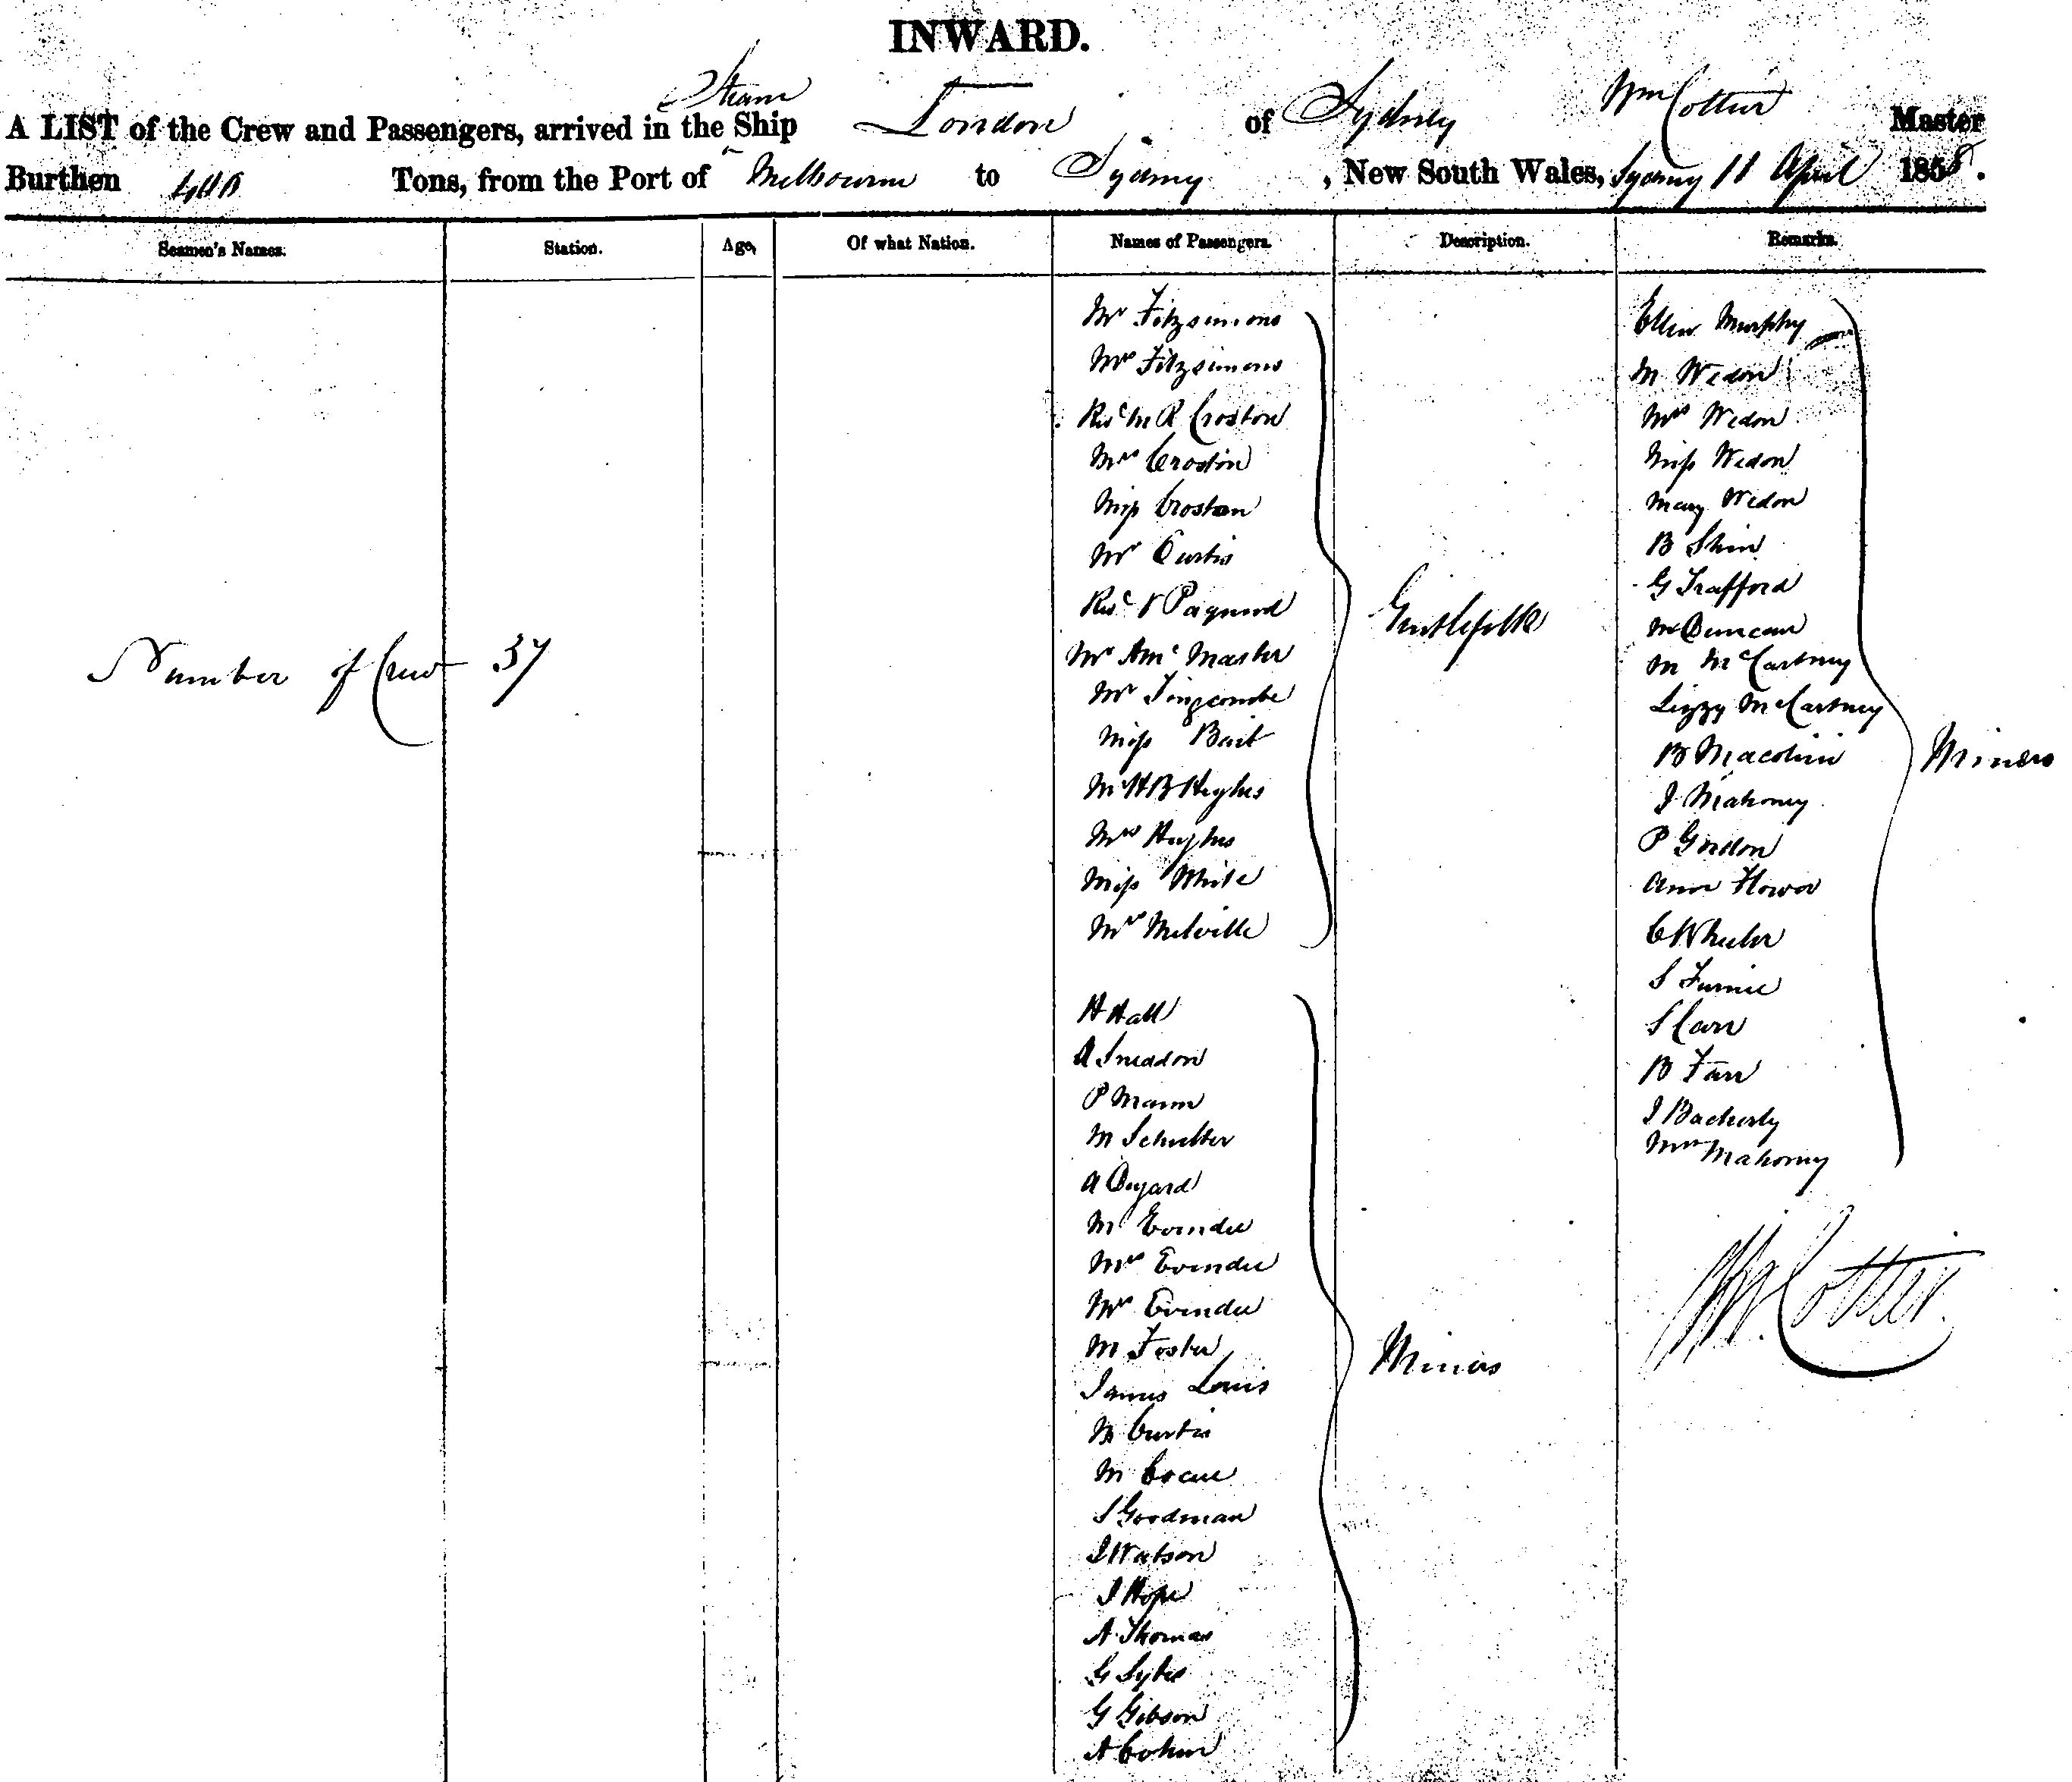 INWARD.
Steam
A LIST of the Crew and Passengers, arrived in the Ship London of Sydney Wm Cottier Master
Burthen Tons, from the Port of Melbourne to Sydney, New South Wales, Sydney 11 April 1858.
Seamen's Names. Station. Age, Of what Nation. Names of Passengers. Description. Remarks.
Number of Crew 37
Mr Fitzsimons
Mrs Fitzsimons
Revd Mr Croston
Mrs Croston
Miss Croston
Mr Curtis
Revd
Mr Master
Mr Tingcombe
Miss Bait
Mr H B Hughes
Mrs Hughes
Miss White
Mrs Melville
Gentlefolk
H Hall
A Sneddon
P Mann
M Schulter
A
M Evendee
Mrs Evendee
Mr Evendee
M Foster
James Louis
Curtis
M
S Goodman
J Watson
J Hope
A Thomas
G
G Gibson
A Cohen
Miners
Ellen Murphy
M Wedon
Mrs Wedon
Miss Wedon
Mary Wedon
B Shin
G Trafford
M Duncan
M McCartney
Lizzy McCartney
B
J Mahoney
P Gordon
Ann Flower
C Wheeler
S
S Carr
B Farr
J
Mrs Mahoney
Miners
Wm Cottier.